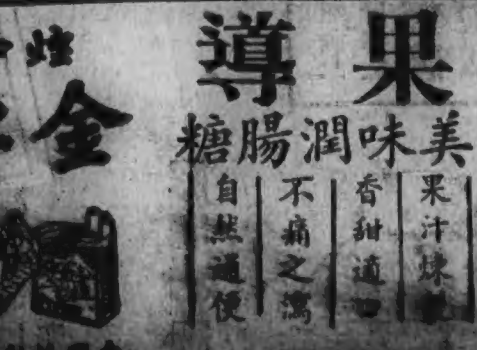 果導
美味潤腸糖
果汁煉
香甜適口
不痛之瀉
自然通便
金